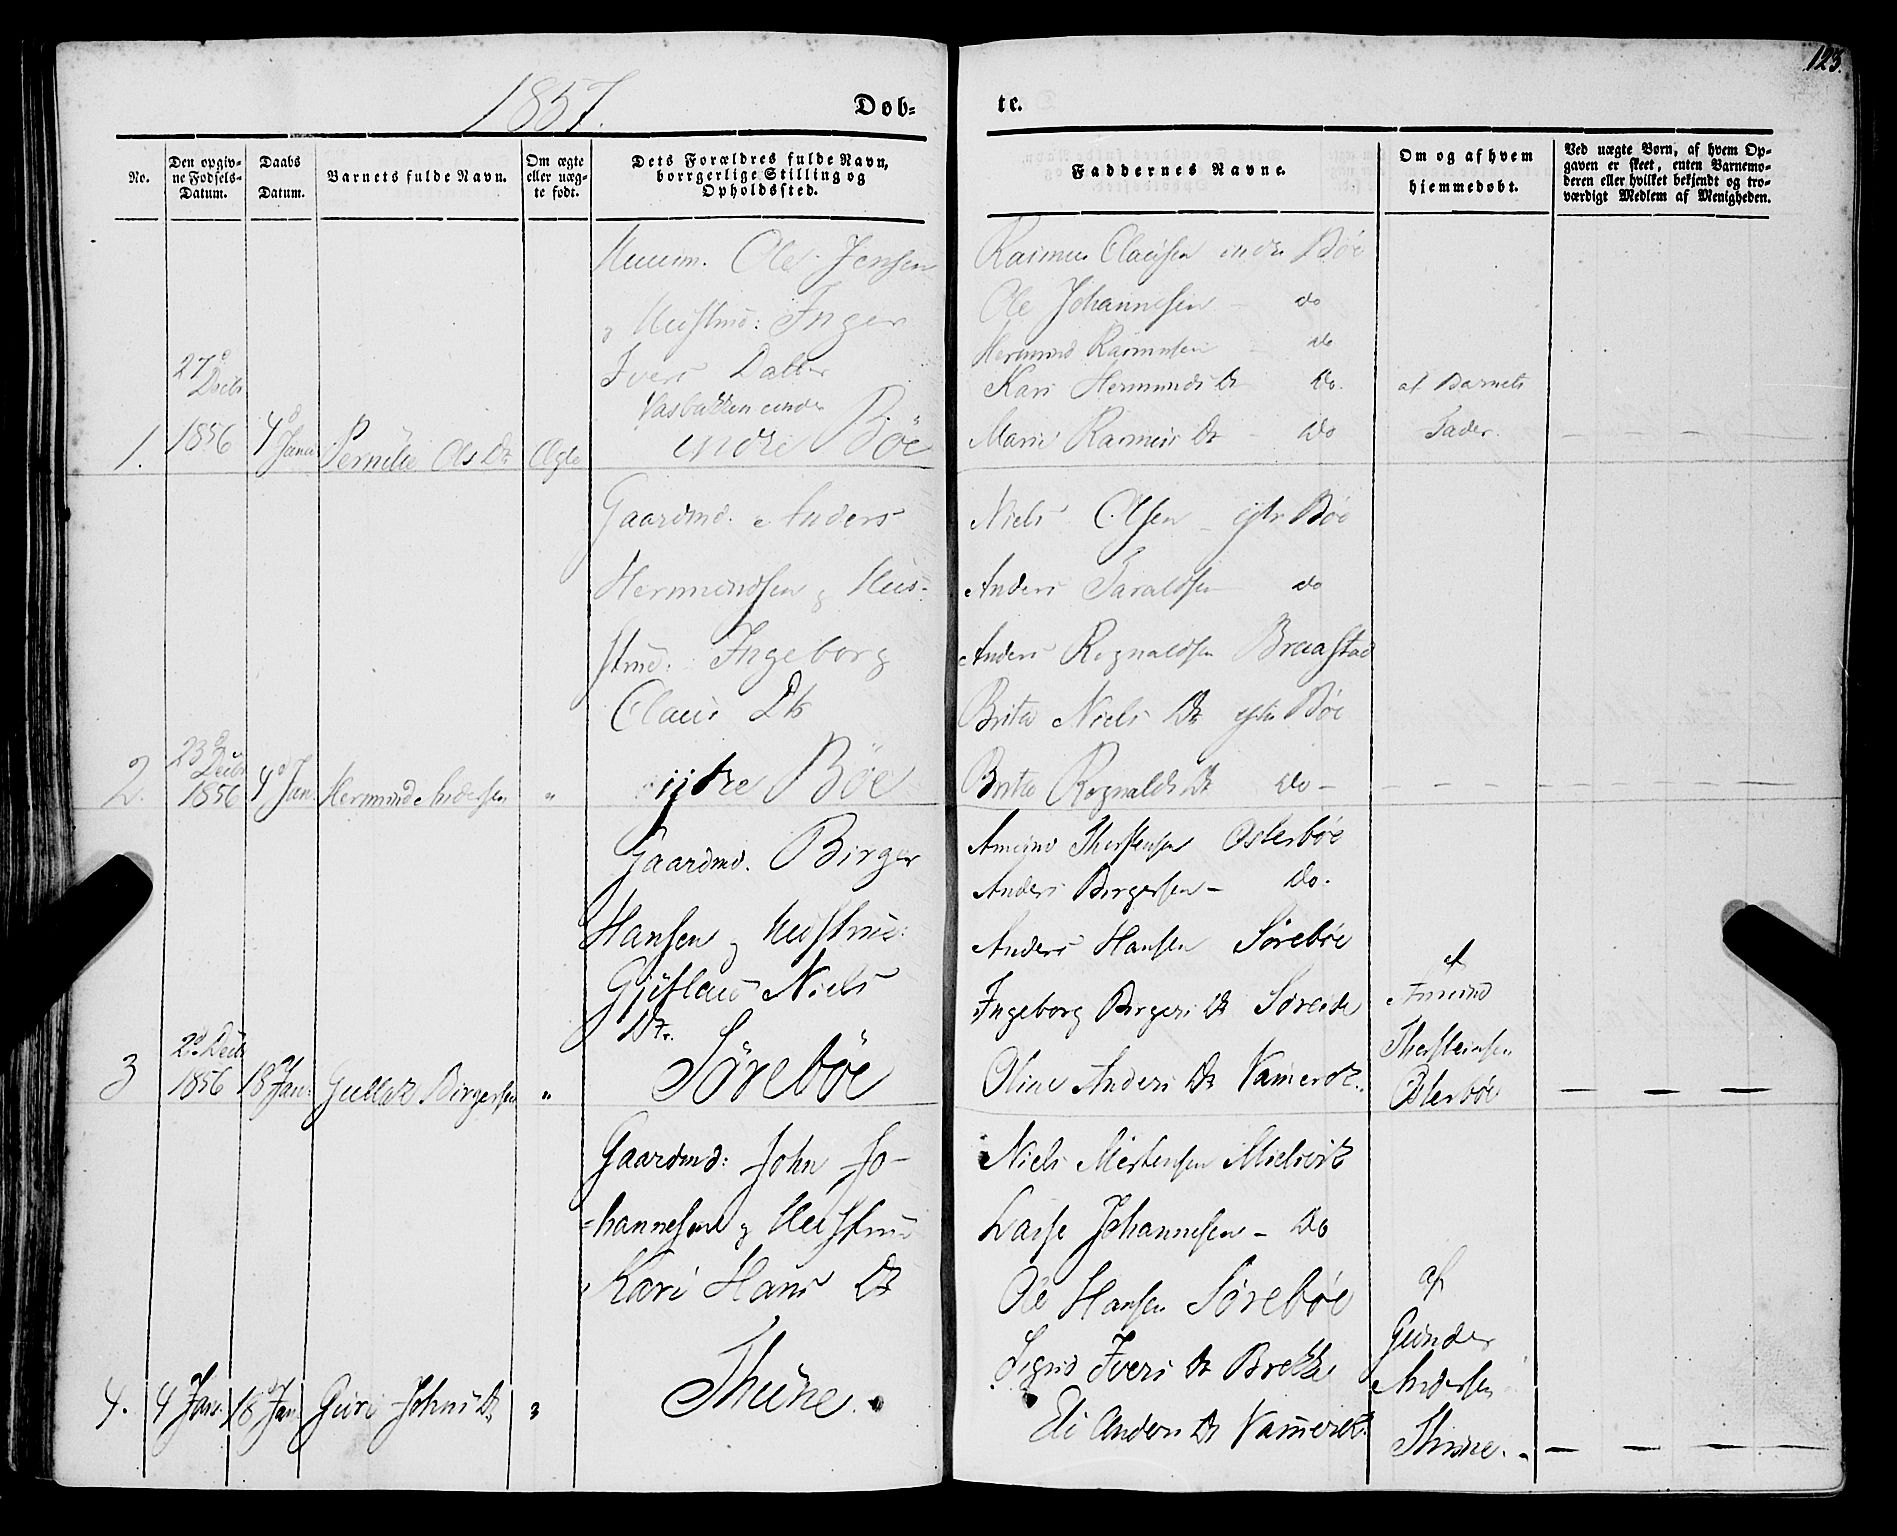 123.
1857.
Døb-
te.
No.
Den opgiv-
ne Fødsels-
Datum.
Daabs
Datum.
Barnets fulde Navn.
Om ægte
eller uæg-
te født.
Dets Forældres fulde Navn,
borrgerlige Stilling og
Opholdssted.
Faddernes Navne.
Om og af hvem
hjemmedøbt.
Ved uægte Børn, af hvem Op-
gaven er skeet, enten Barnemo-
deren eller hvilket bekjendt og tro-
værdigt Medlem af Menigheden.
1.
27d
Decbr
1856
4d
Janu
Pernille Ols Dr
Ægte
Huusm. Ole Jensen
g Hustrue: Inger
Ivers Datter
under
indre Bøe
Rasmus Clausen indre Bøe
Ole Johannesen - do
Hermund Rasmusen - do
Kari Hermunds Dr Do.
Marie Rasmus Dr - Do
af Barnets
Fader.
2.
23d
Decbr
1856
4d Jan
Hermund Andersen
"
Gaardmd. Anders
Hermundsen g Hus-
strue: Ingeborg
Claus Dtr
ijtre Bøe
Niels Olsen - ijtr Bøe
Anders Taraldsen do
Anders Rognaldsen Breastad
Brita Niels Dr ytre Bøe
Brita Rognalds Dr Do -
3
2d Decb
1856
18d Jan:
Gullak Birgersen
"
Gaardmd. Birger
Hansen g Hustrue:
Gjütlaug Niels
Dtr.
Sørebøe
Amund Thorstensen Osterbøe
Anders Birgersen - Do.
Anders Hansen Sørebøe
Ingeborg Birgers Dr Søreide
Oline Anders Dr Vamerok.
af
Amund
Thorsteinsen
Osterbøe
4.
4 Jan.
18d Jan.
Guri Johns Dr
"
Gaardmd: John Jo-
-hannesen g Hustrue
Kari Hans Dr
Thüne.
Niels Mortensen Mielvik
Lasse Johannesen - Do
Ole Hansen Sørebøe
Sigrid Ivers Dr Brekke
Eli Anders Dr Vamerok.
af
Gunder
Andersen
Thüne.